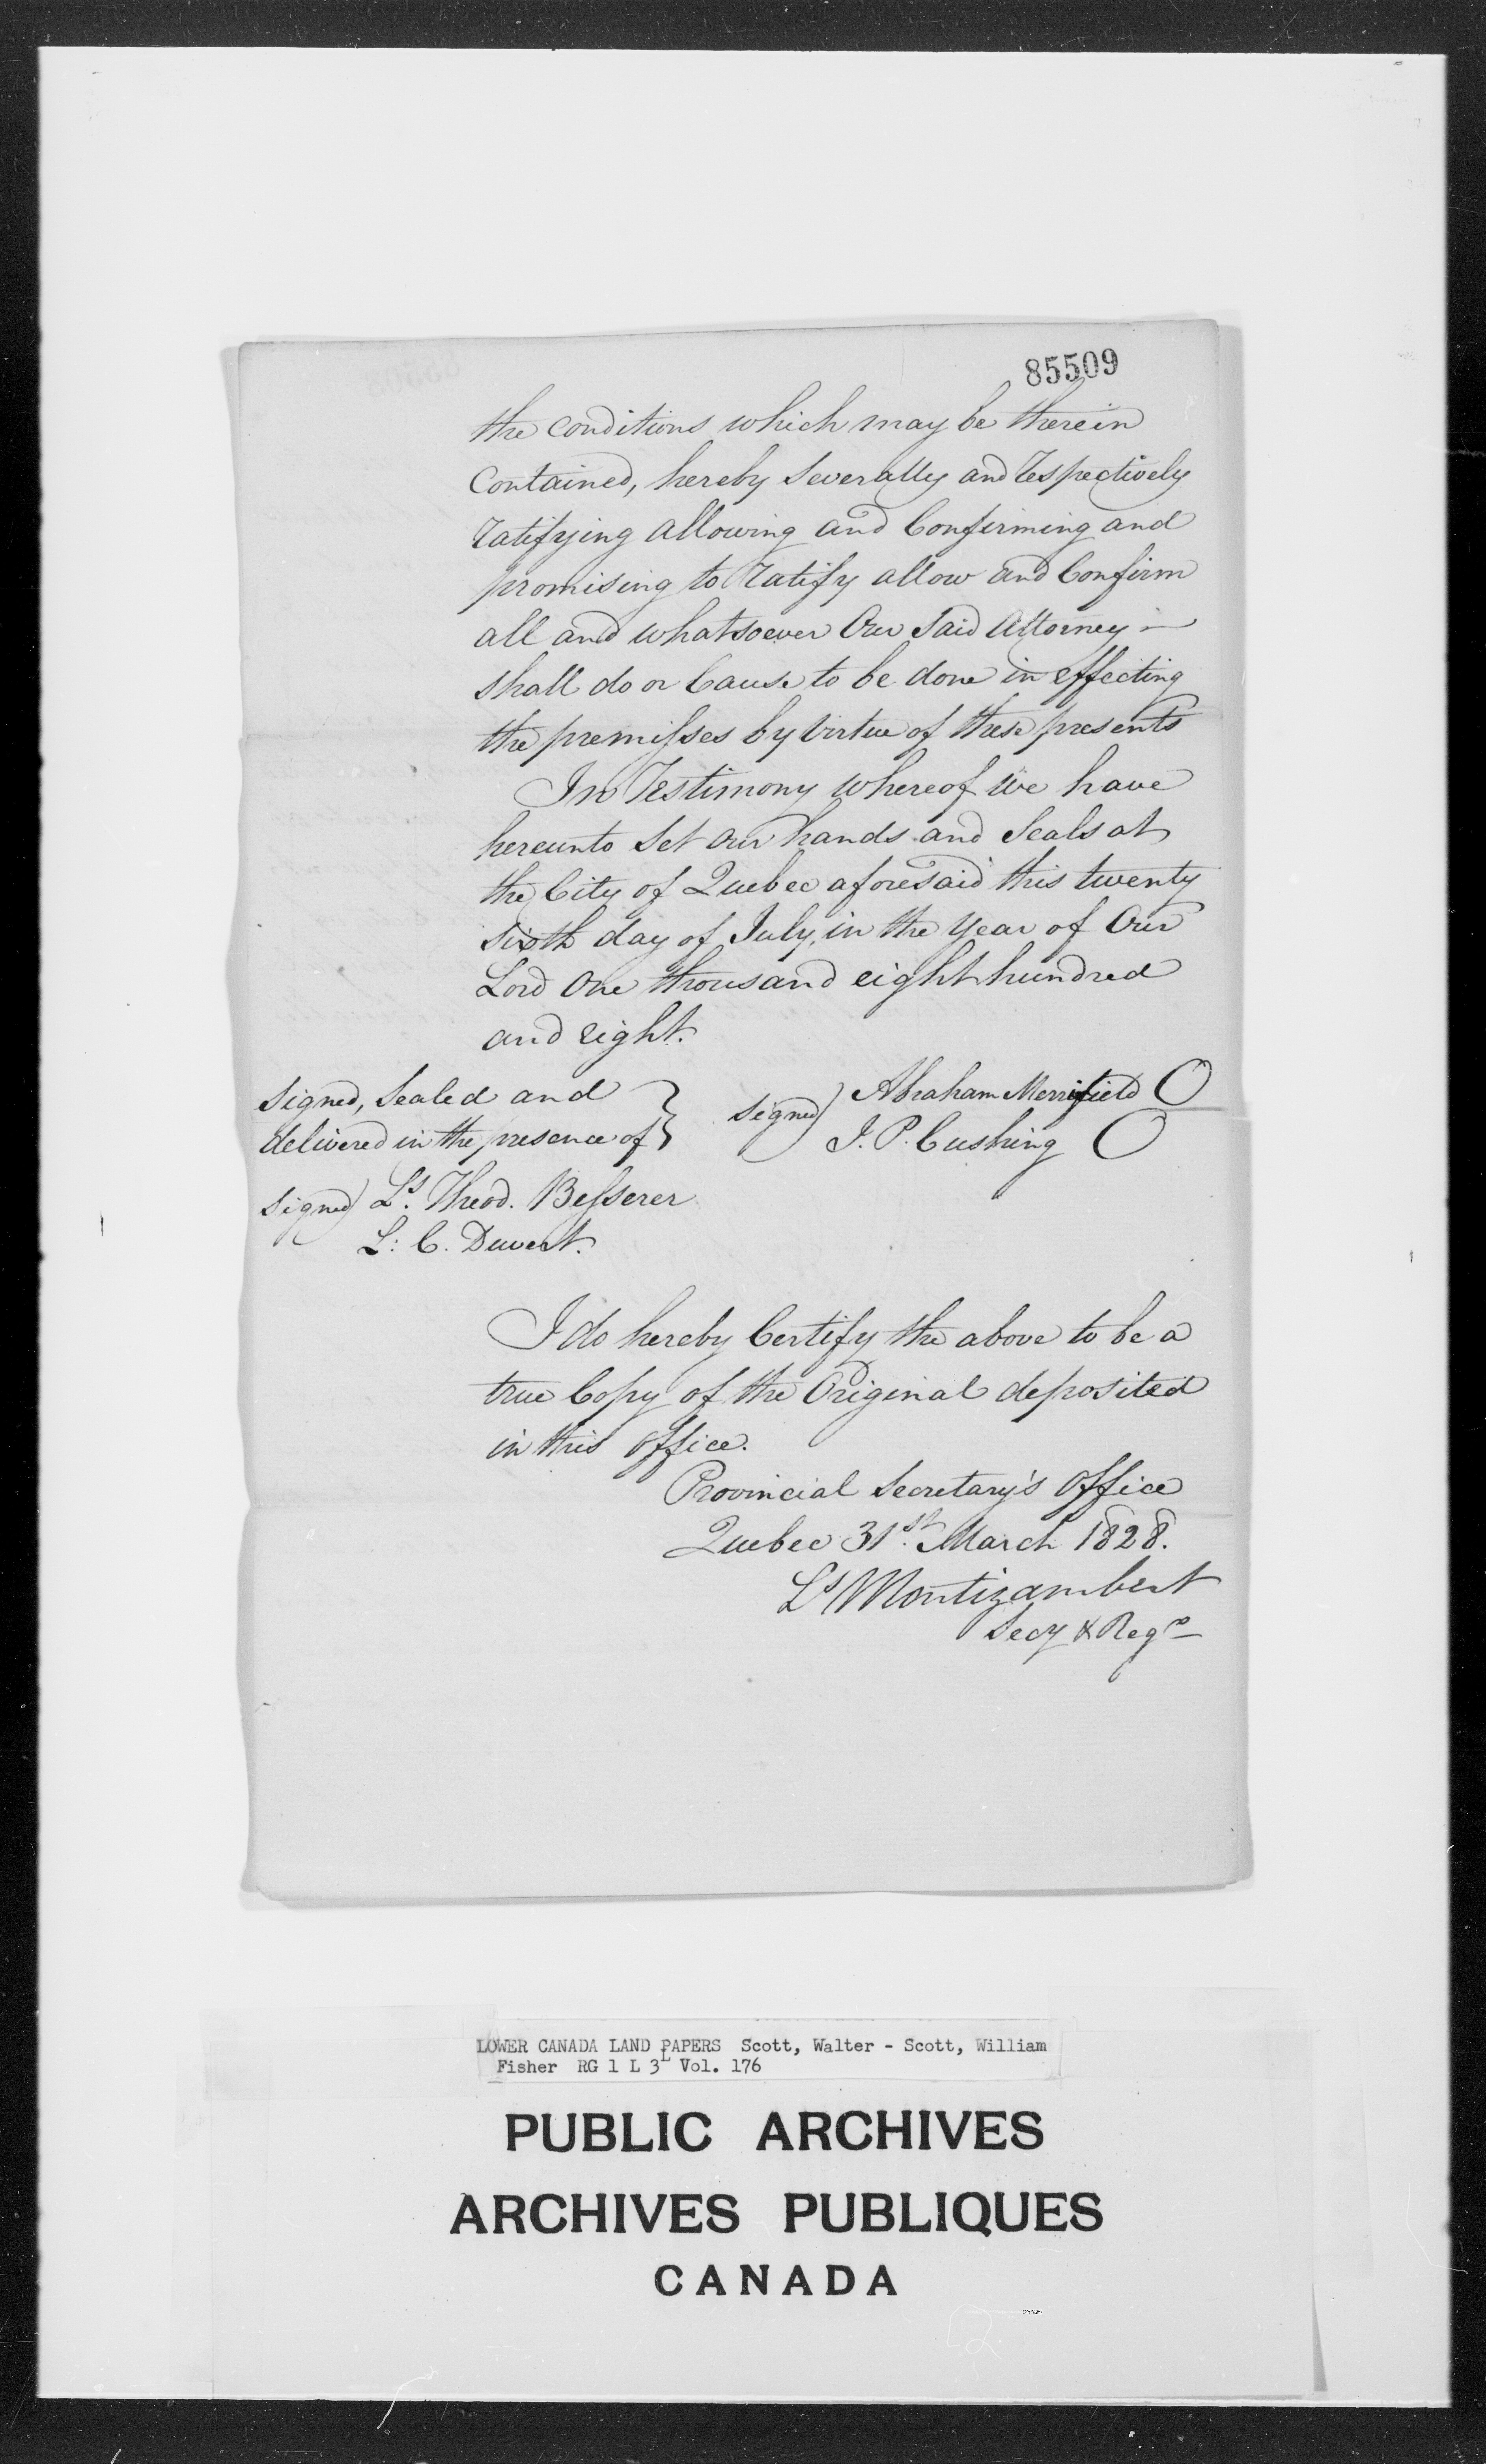 85509
the conditions which may be therein
Contained, hereby Severally and respectively
ratifying allowing and Confirming and
promising to ratify allow and Confirm
all and whatsoever Our Said Attorney
shall do or Cause to be done in effecting
the premisses by Virtue of these presents
In Testimony whereof we have
hereunto Set our hands and Seals at
the City of Quebec aforesaid this twenty
Sixth day of July, in the Year of Our
Lord One thousand eight hundred
and eight.
Signed, Sealed and
delivered in the presence of
signed) Abraham Merrifield
J. P. Cushing
signed) Ls. Theod. Besserer
L: C. Duvert.
I do hereby Certify the above to be a
true Copy of the Original deposited
in this Office.
Provincial Secretary's Office
Quebec 31st. March 1828.
Ls Montizambert
Secy & Regr
LOWER CANADA LAND PAPERS Scott, Walter - Scott, William
Fisher RG 1 L 3L Vol. 176
PUBLIC ARCHIVES
ARCHIVES PUBLIQUES
CANADA